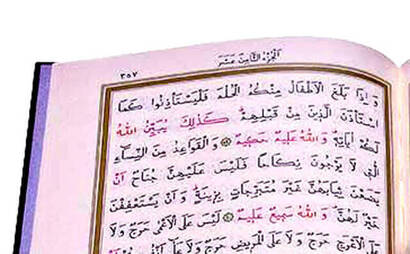 الجزء الثامن عشر
٣٥٧
وَإِذَا بَلَغَ الْأَطْفَالُ مِنْكُمُ الْحُلُمَ فَلْيَسْتَأْذِنُوا كَمَا
اسْتَأْذَنَ الَّذِينَ مِنْ قَبْلِهِمْ كَذَٰلِكَ يُبَيِّنُ اللَّهُ
لَكُمْ آيَاتِهِ وَاللَّهُ عَلِيمٌ حَكِيمٌ وَالْقَوَاعِدُ مِنَ النِّسَاءِ
الّٰتِي لَا يَرْجُونَ نِكَاحًا فَلَيْسَ عَلَيْهِنَّ جُنَاحٌ أَنْ
يَضَعْنَ ثِيَابَهُنَّ غَيْرَ مُتَبَرِّجَاتٍ بِزِينَةٍ وَأَنْ يَسْتَعْفِفْنَ
خَيْرٌ لَهُنَّ وَاللَّهُ سَمِيعٌ عَلِيمٌ لَيْسَ عَلَى الْأَعْمَى حَرَجٌ وَلَا
عَلَى الْأَعْرَجِ حَرَجٌ وَلَا عَلَى الْمَرِيضِ حَرَجٌ وَلَا عَلَى